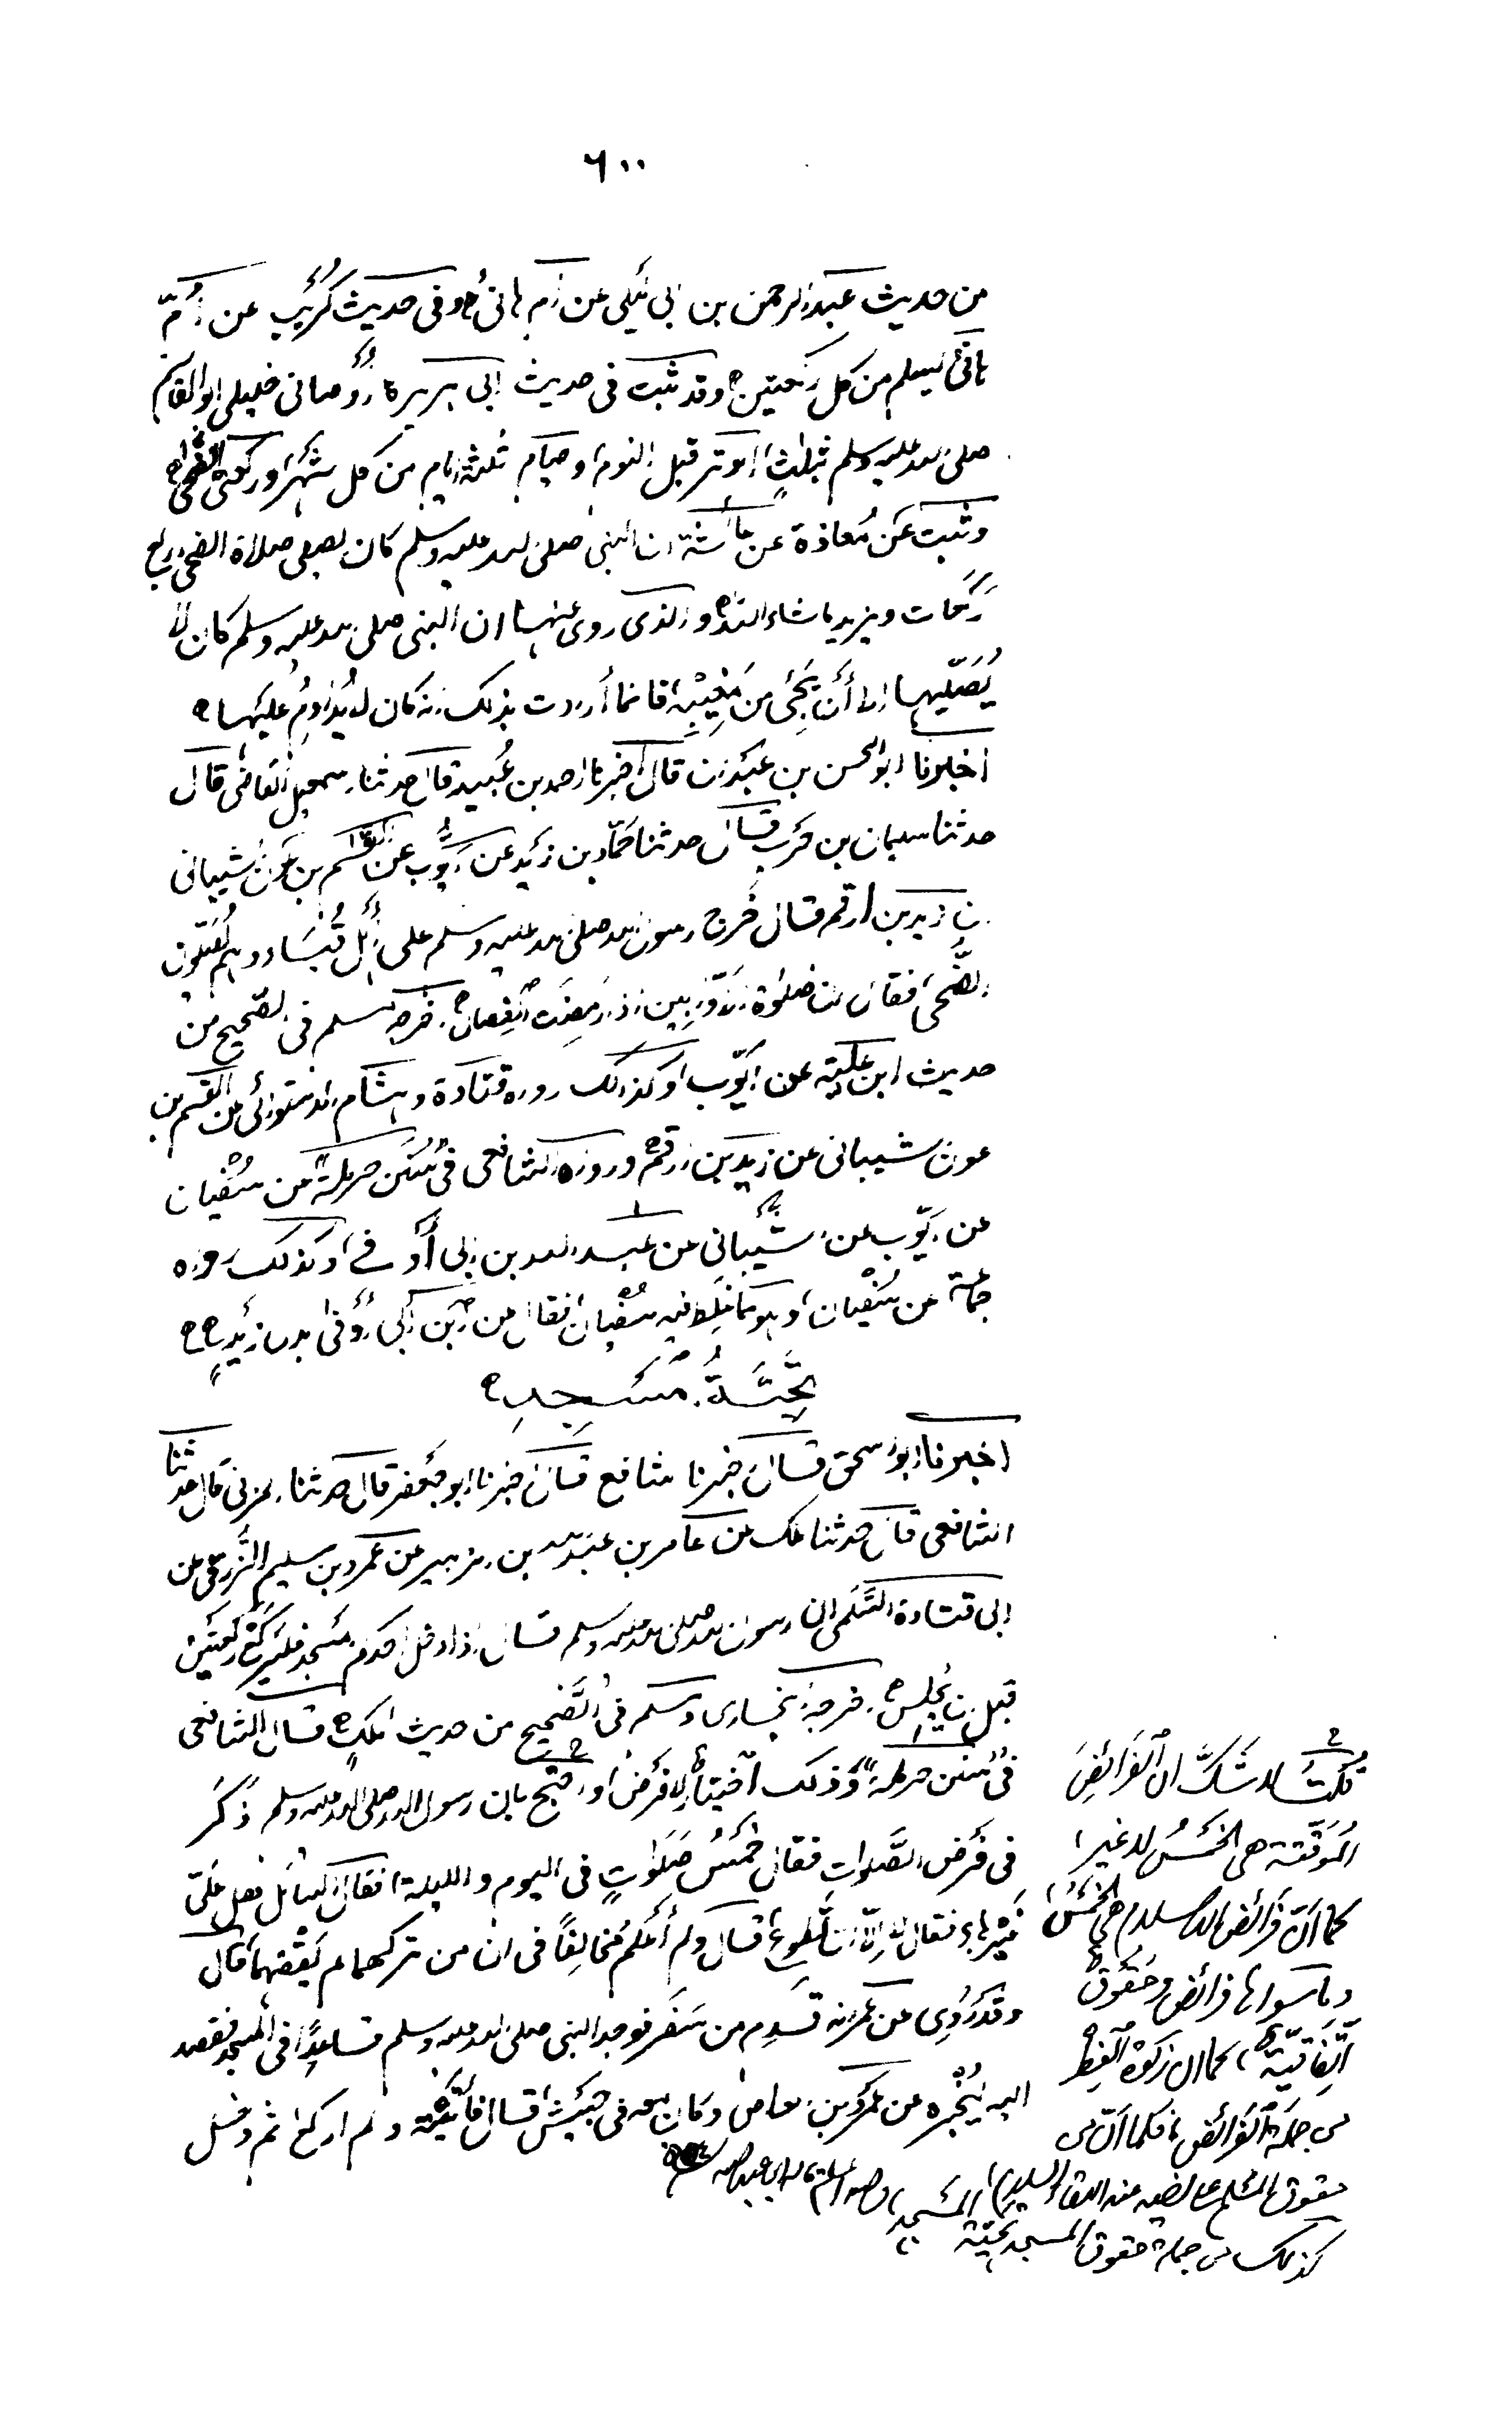 ٦٠٠
من حديث عبد الرحمن بن ابى ليلى عن ام هانئ وفى حديث كريب عن أمّ
هانئ يسلم من كل ركعتين وقد ثبت فى حديث ابى هريرة اوصانى خليلى ابو القاسم
صلى الله عليه وسلم بثلاثٍ الوتر قبل النوم وصيام ثلثة ايام من كل شهر وركعتى الضحى
وثبت عن مُعاذة عن عائشة ان النبى صلى الله عليه وسلم كان يصلى صلاة الضحى اربع
ركعات ويزيد ما شاء الله والذى روى عنها ان النبى صلى الله عليه وسلم كان لا
يُصَلّيها الا أن يَجِئ من مَغِيبِه فانما أردت بذلك انه كان لا يُداوِمُ عليها
اخبرنا ابو الحسن بن عبدان قال اخبرنا احمد بن عُبيد قال حدثنا اسمعيل القاضى قال
حدثنا سليمان بن حرب قال حدثنا حمّاد بن زيد عن ايّوب عن القسم بن عوف الشيبانى
ان زيد بن ارقم قال خرج رسول الله صلى الله عليه وسلم على اهل قُبَاء وهم يُصَلّون
الضُّحى فقال ان صلوة الاوّابين اذا رَمِضَت الفِصال اخرجه مسلم فى الصّحيح من
حديث ابن عليّة عن ايّوب وكذلك رواه قتادة وهشام الدستوائى عن القسم بن
عوف الشيبانى عن زيد بن ارقم ورواه الشافعى فى سُنَن حرملة عن سُفيان
عن ايّوب عن الشيبانى عن عبد الله بن ابى أوفى وكذلك رواه
جماعة عن سُفيان وهو مما غلِط فيه سُفيان فقال عن ابن ابى اوفى بدل زيدٍ
تَحِيَّةُ المَسجدِ
اخبرنا ابو اسحق قال اخبرنا شافع قال اخبرنا ابو جعفر قال حدثنا المزنى قال حدثنا
الشافعى قال حدثنا ملك عن عامر بن عبد الله بن الزبير عن عمرو بن سليم الزُّرقى عن
ابى قتادة السَّلَمى ان رسول الله صلى الله عليه وسلم قال اذا دخل احدكم المسجد فليركع ركعتين
قبل ان يجلس اخرجه البخارى ومسلم فى الصَّحيح من حديث ملكٍ قال الشافعى
فى سُنن حرملة وذلك اختيارٌ لا فرض واحتج بان رسول الله صلى الله عليه وسلم ذكر
فى فَرْض الصَّلوات فقال خَمْسُ صَلَوَاتٍ فى اليوم والليلة فقال السائل هل علَىّ
غَيْرها فقال لا الّا ان تَطوع قال ولم أعلم مخالِفاً فى ان من تركهما لم يقضهما قال
وقد رُوِى عن عمر انه قدِم من سَفَر فوجد النبى صلى الله عليه وسلم قاعِداً فى المسجد فقصد
اليه يُخبره عن عمرو بن العاص وكان معه فى جيش قال فاتيته ولم اركع ثم دخل
قلتُ لا شكَّ ان الفَرائضَ
المُوَقّتة هى الخَمسُ لا غير
كما انّ فَرائض الاسلام هى الخَمْسُ
وما سواها فرائض وحُقُوقٌ
اتّفاقيّةٌ كما ان زكوة الفِطْر
من جملة الفَرائض فكما انّ من
حقوق المُسْلم على اخيه عند اللقاء السلام
كذلك من جملة حقوق المسجد تحيّة المَسْجد